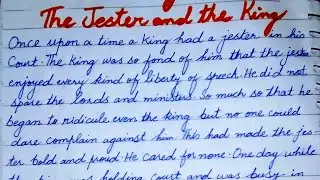 The Jester and the King
Once upon a time a king had a jester in his
Court. The king was so fond of him that the jester
enjoyed every kind of liberty of speech. He did not
spare the lords and ministers so much so that he
began to ridicule even the king but no one could
dare complain against him. This had made the jes-
ter bold and proud. He cared for none. One day while
holding court and was busy in